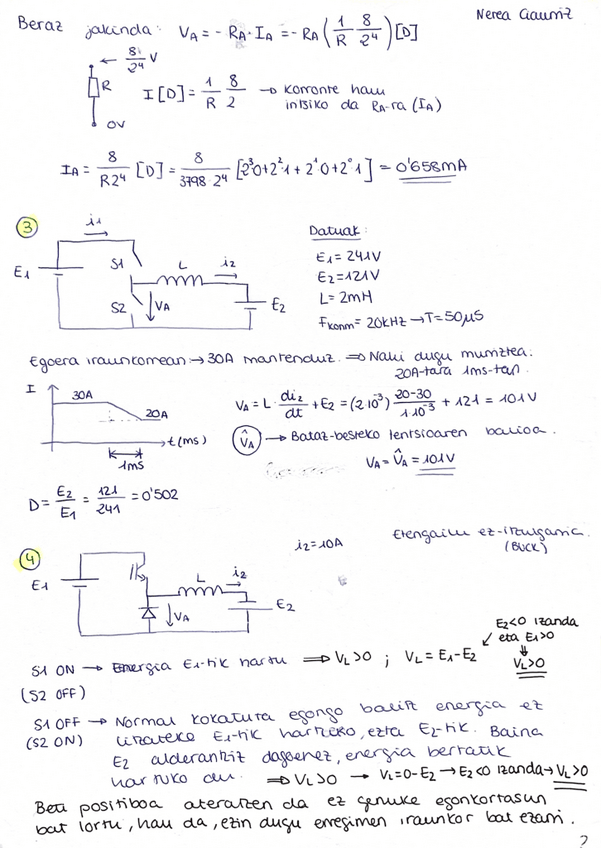 Nerea Ciaurriz
Beraz jakinda: VA = - RA · IA = - RA ( 1/R 8/2⁴ ) [D]
8/2⁴ V
R
0V
I [D] = 1/R 8/2 → korronte hau
iritsiko da RA-ra (IA)
IA = 8/R2⁴ [D] = 8/3798·2⁴ [2³0+2²·1+2¹·0+2⁰·1] = 0'658mA
3
i1
E1
S1
L
i2
S2
VA
E2
Datuak:
E1 = 241V
E2 = 121V
L = 2mH
Fkonm = 20kHz → T = 50µS
Egoera iraunkorrean → 30A mantenduz. ⇒ Nahi dugu murriztea.
20A-tara 1ms-tan.
I
30A
20A
t (ms)
1ms
VA = L · di2/dt + E2 = (2·10⁻³) 20-30/1·10⁻³ + 121 = 101V
V̂A → Bataz-besteko tentsioaren balioa.
VA = V̂A = 101V
D = E2/E1 = 121/241 = 0'502
4
i2 = 10A
Etengailu ez-itzulgarria.
(BUCK)
E1
L
i2
VA
E2
S1 ON → Energia E1-tik hartu ⇒ VL>0 ; VL = E1-E2
(S2 OFF)
E2<0 izanda
eta E1>0
VL>0
S1 OFF → Normal kokatura egongo balitz energia ez
(S2 ON) litzateke E1-tik hartzeko, ezta E2-tik. Baina
E2 alderantziz dagoenez, energia bertatik
hartuko du. ⇒ VL>0 → VL=0-E2 → E2<0 izanda → VL>0
Beti positiboa ateratzen da ez genuke egonkortasun
bat lortu, hau da, ezin dugu erregimen iraunkor bat ezarri.
2